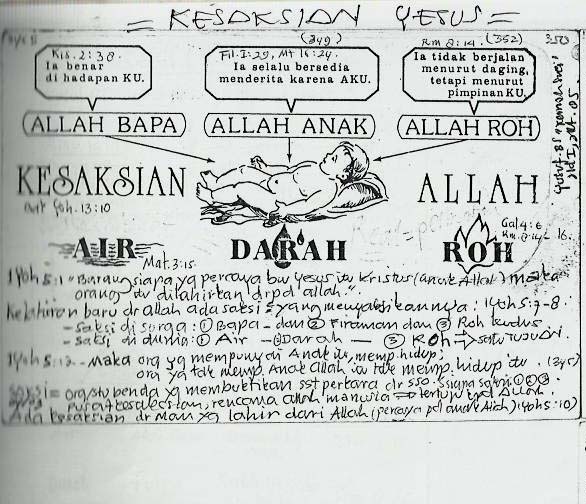 = KESAKSIAN YESUS =
Kis. 2:38.
Ia benar
di hadapan KU.
(349)
Fil. 1:29, Mt 16:24.
Ia selalu bersedia
menderita karena AKU.
Rm 8:14. (352)
Ia tidak berjalan
menurut daging,
tetapi menurut
pimpinan KU.
350
ALLAH BAPA
ALLAH ANAK
ALLAH ROH
KESAKSIAN
ALLAH
Yoh. 13:10
AIR
DARAH
ROH
Mat. 3:15
Gal 4:6
Rm 8:14-16.
1 Yoh 5:1 "Barang siapa yg percaya bw Yesus itu Kristus (anak Allah) maka
orang itu dilahirkan drpd allah".
Kelahiran baru dr allah ada saksi2 yang menyaksikannya: 1 Yoh 5:7-8.
- saksi di surga: ① Bapa - dan ② Firman dan ③ Roh kudus
- saksi di dunia: ① Air - ② Darah - ③ Roh ⇒ satu TUJUAN.
1 Yoh 5:12 - Maka org yg mempunyai Anak itu, memp. hidup;
org ya tak memp. Anak Allah ia tak memp. hidup itu. (345)
saksi = org/stu benda yg membuktikan sst perkara dr sso.
pusat kesaksian, rencana allah manusia
Ada kesaksian dr Man yg lahir dari Allah (percaya pd anak Allah) 1 Yoh 5:10)